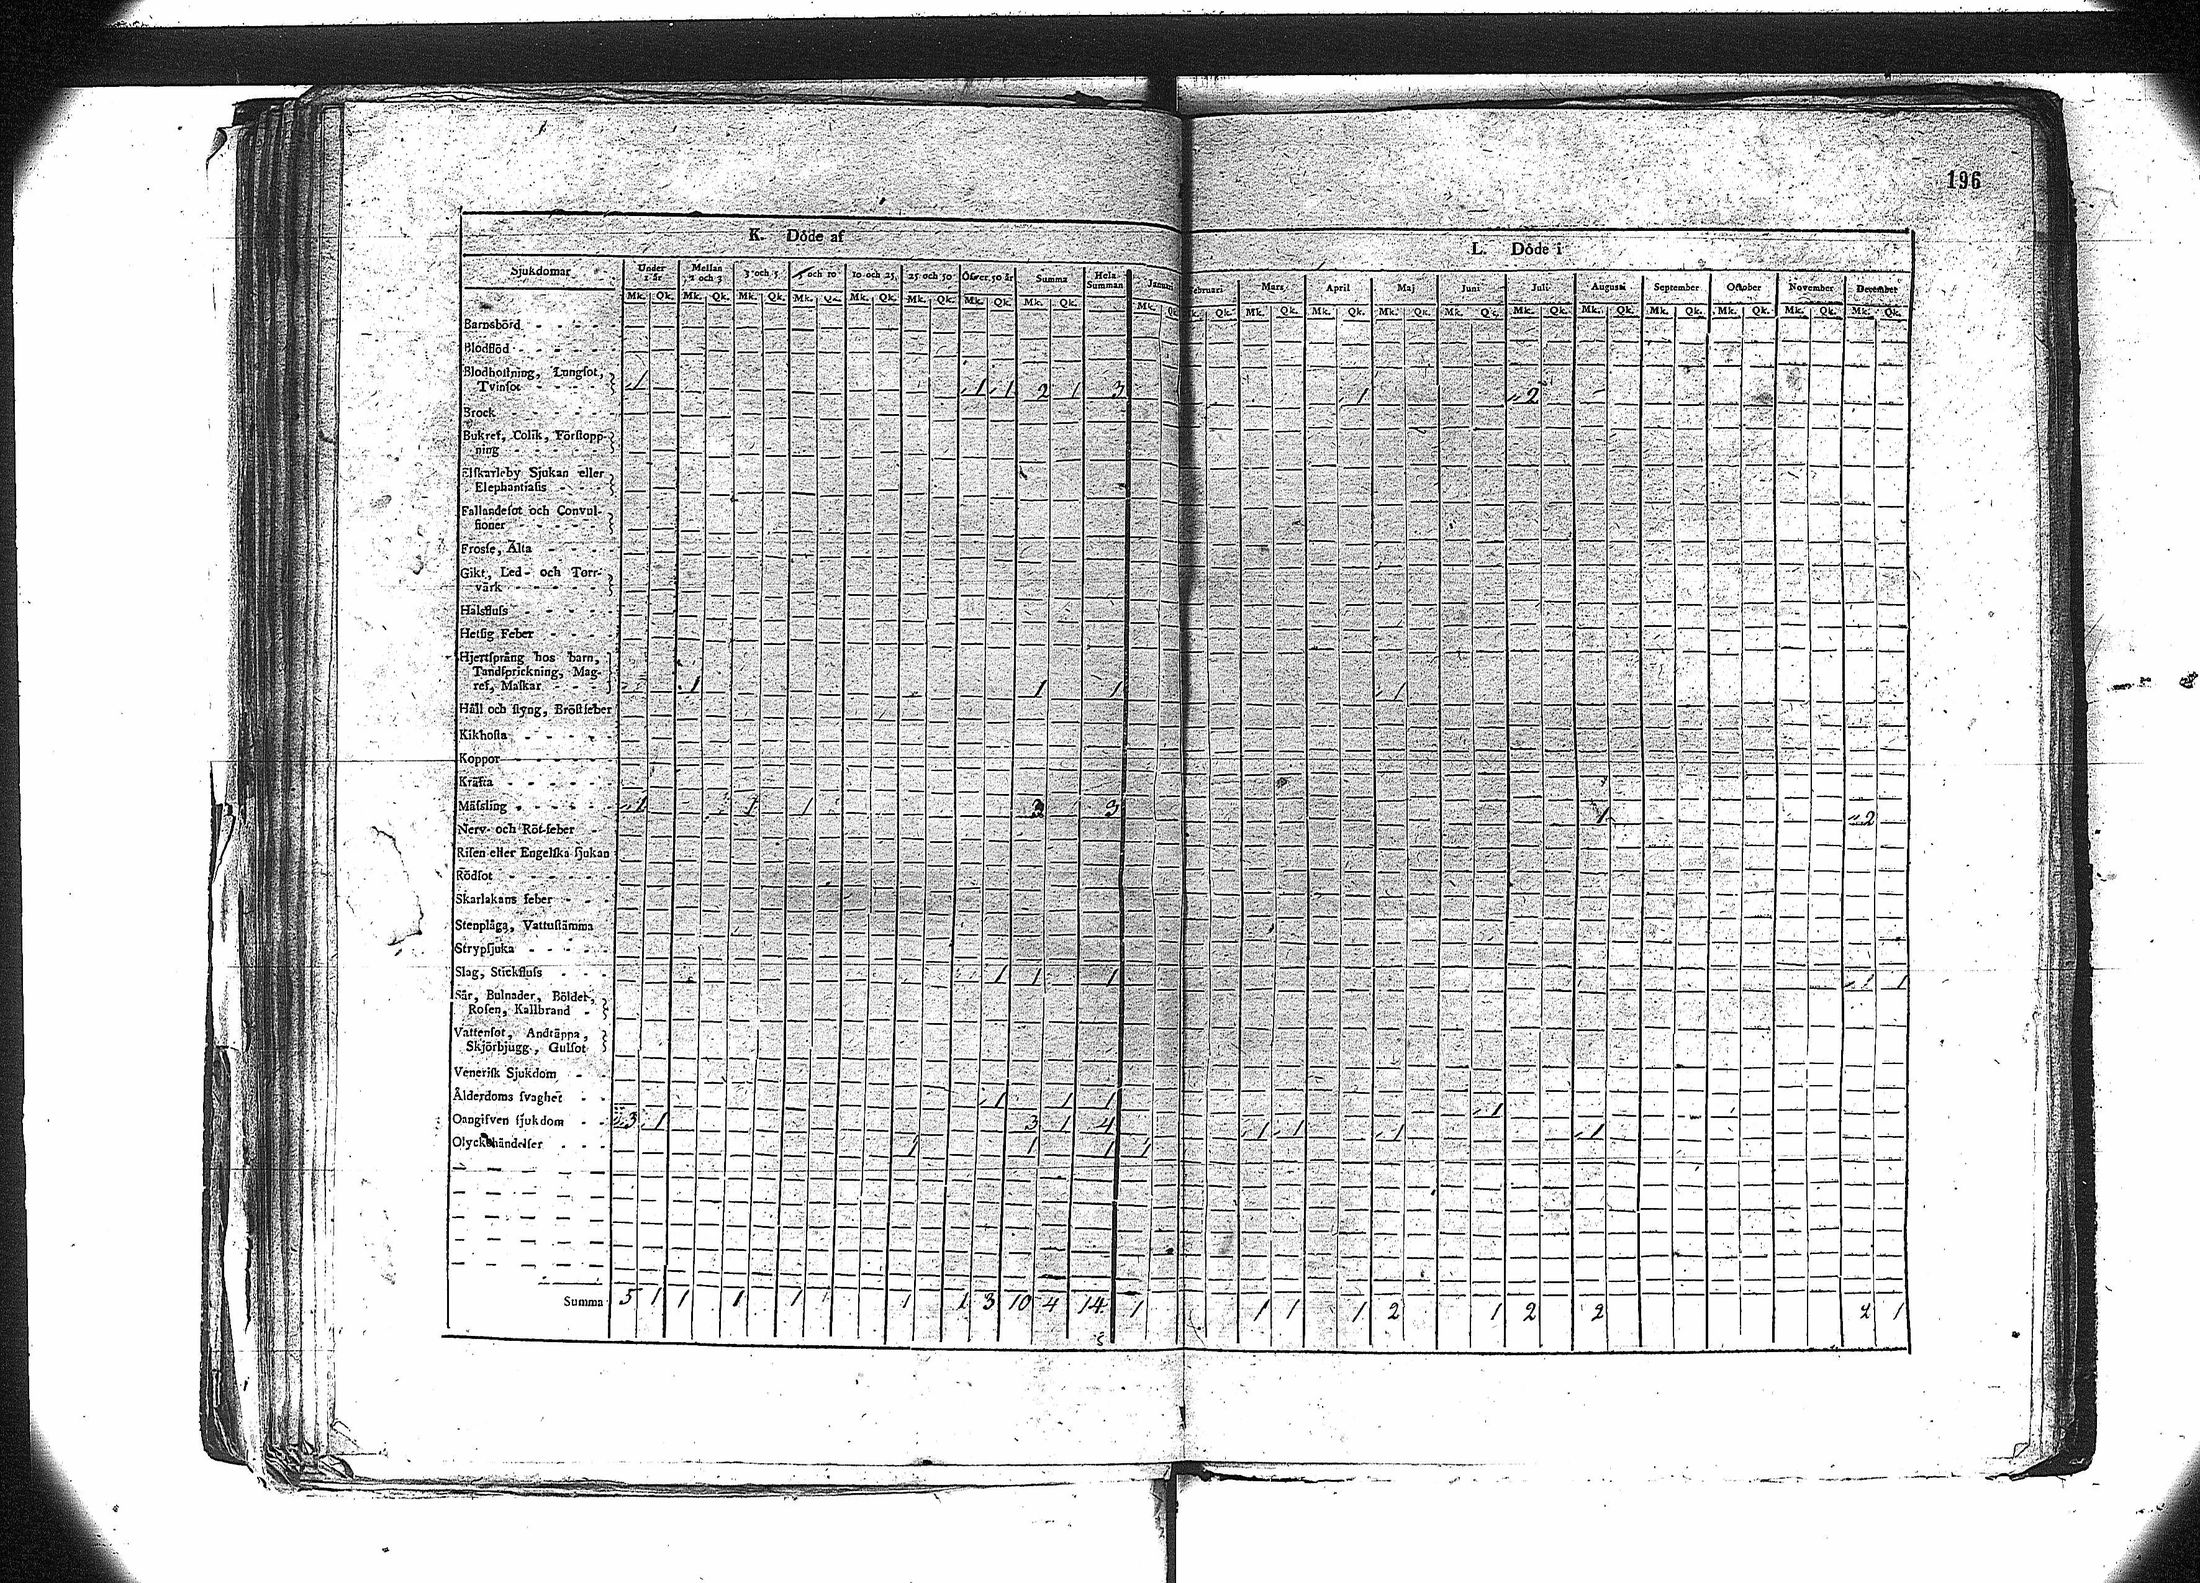 196
K. Döde af
L. Döde i
Sjukdomar Under 1 år Mellan 1 och 3 3 och 5 5 och 10 10 och 25 25 och 50 Öfver 50 år Summa Hela Summan Januari Februari Mars April Maj Juni Juli Augusti September October November December
Mk. Qk. Mk. Qk. Mk. Qk. Mk. Qk. Mk. Qk. Mk. Qk. Mk. Qk. Mk. Qk. Mk. Qk. Mk. Qk. Mk. Qk. Mk. Qk. Mk. Qk. Mk. Qk. Mk. Qk. Mk. Qk. Mk. Qk. Mk. Qk. Mk. Qk. Mk. Qk.
Barnsbörd
Blodflöd
Blodhoſtning, Lungſot,
Tvinſot 1 1 1 2 1 3 1 2
Brock
Bukref, Colik, Förſtopp-
ning
Elſkarleby Sjukan eller
Elephantiaſis
Fallandeſot och Convul-
ſioner
Froſſe, Älta
Gikt, Led- och Torr-
värk
Halsfluſs
Hetſig Feber
Hjertſprång hos barn,
Tandſprickning, Mag-
ref, Maſkar 1 1 1 1
Håll och ſtyng, Bröſtfeber
Kikhoſta
Koppor
Kräfta
Mäſsling 1 1 1 3 3 1 2
Nerv- och Röt-feber
Riſen eller Engelſka ſjukan
Rödſot
Skarlakans feber
Stenplåga, Vattuſtämma
Strypſjuka
Slag, Stickfluſs 1 1 1 1 1
Sår, Bulnader, Bölder,
Roſen, Kallbrand
Vattenſot, Andtäppa,
Skjörbjugg, Gulſot
Veneriſk Sjukdom
Ålderdoms ſvaghet 1 1 1 1
Oangifven ſjukdom 3 1 3 1 4 1 1 1 1
Olyckshändelſer 1 1 1 1
Summa 5 1 1 1 1 1 1 3 10 4 14 1 1 1 1 2 1 2 2 2 1